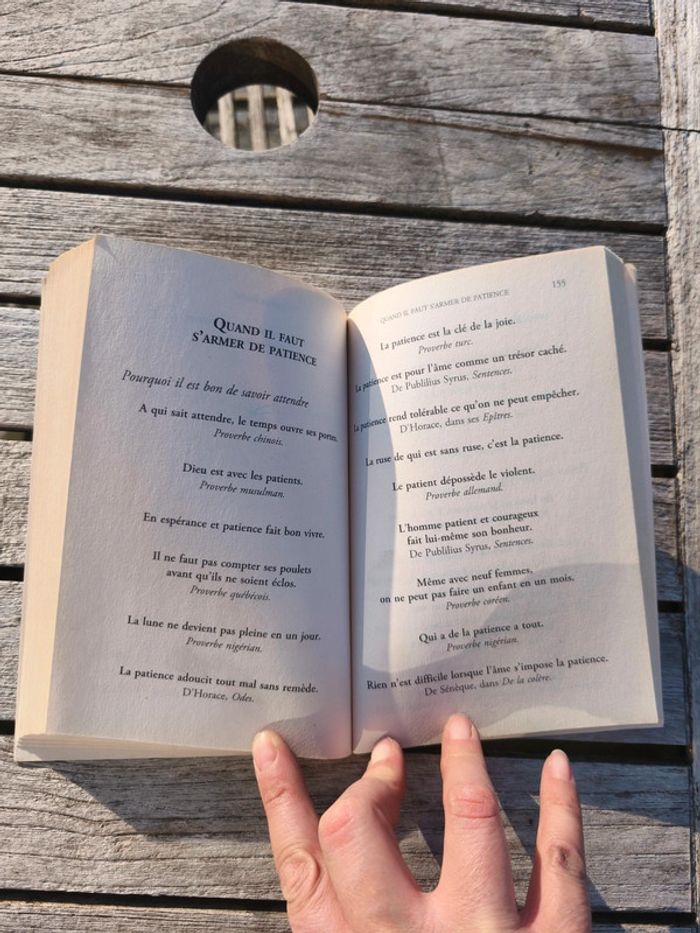 QUAND IL FAUT
S'ARMER DE PATIENCE
Pourquoi il est bon de savoir attendre
A qui sait attendre, le temps ouvre ses portes.
Proverbe chinois.
Dieu est avec les patients.
Proverbe musulman.
En espérance et patience fait bon vivre.
Il ne faut pas compter ses poulets
avant qu'ils ne soient éclos.
Proverbe québécois.
La lune ne devient pas pleine en un jour.
Proverbe nigérian.
La patience adoucit tout mal sans remède.
D'Horace, Odes.
QUAND IL FAUT S'ARMER DE PATIENCE 155
La patience est la clé de la joie.
Proverbe turc.
La patience est pour l'âme comme un trésor caché.
De Publilius Syrus, Sentences.
La patience rend tolérable ce qu'on ne peut empêcher.
D'Horace, dans ses Epîtres.
La ruse de qui est sans ruse, c'est la patience.
Le patient dépossède le violent.
Proverbe allemand.
L'homme patient et courageux
fait lui-même son bonheur.
De Publilius Syrus, Sentences.
Même avec neuf femmes,
on ne peut pas faire un enfant en un mois.
Proverbe coréen.
Qui a de la patience a tout.
Proverbe nigérian.
Rien n'est difficile lorsque l'âme s'impose la patience.
De Sénèque, dans De la colère.